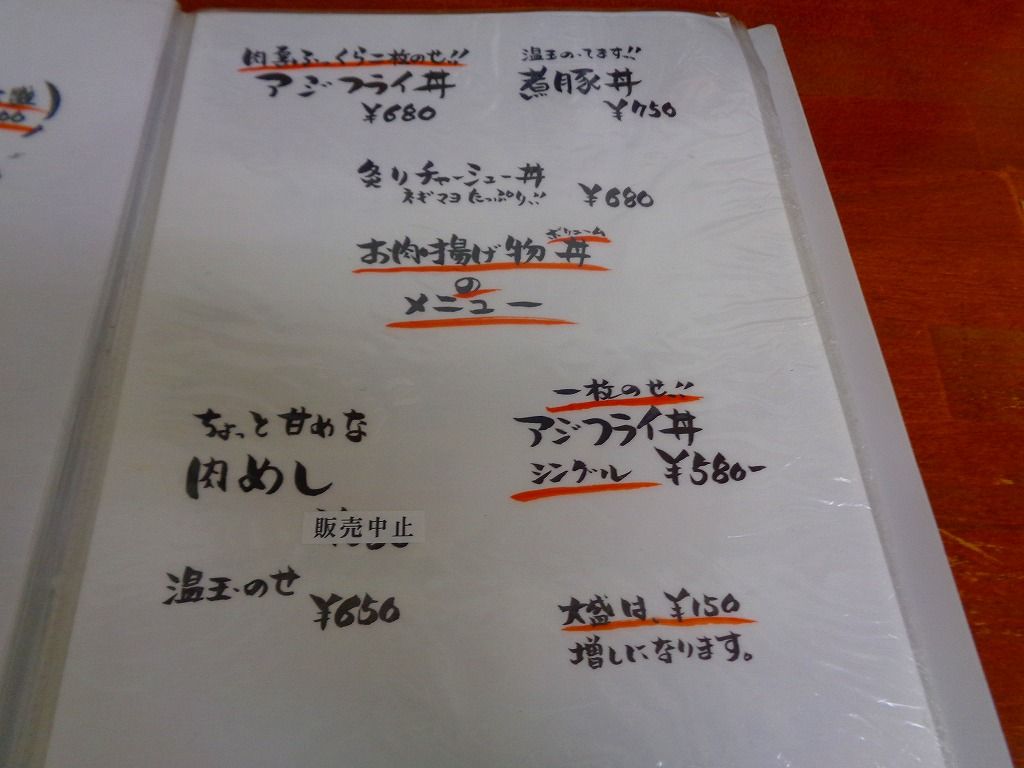 肉厚ふっくら二枚のせ!!
アジフライ丼
¥680
温玉のってます!!
煮豚丼
¥750
炙りチャーシュー丼
ネギマヨたっぷり!!
¥680
ボリューム
お肉揚げ物丼
の
メニュー
ちょっと甘めな
肉めし
販売中止
温玉のせ
¥650
一枚のせ!!
アジフライ丼
シングル ¥580-
大盛は、¥150
増しになります。